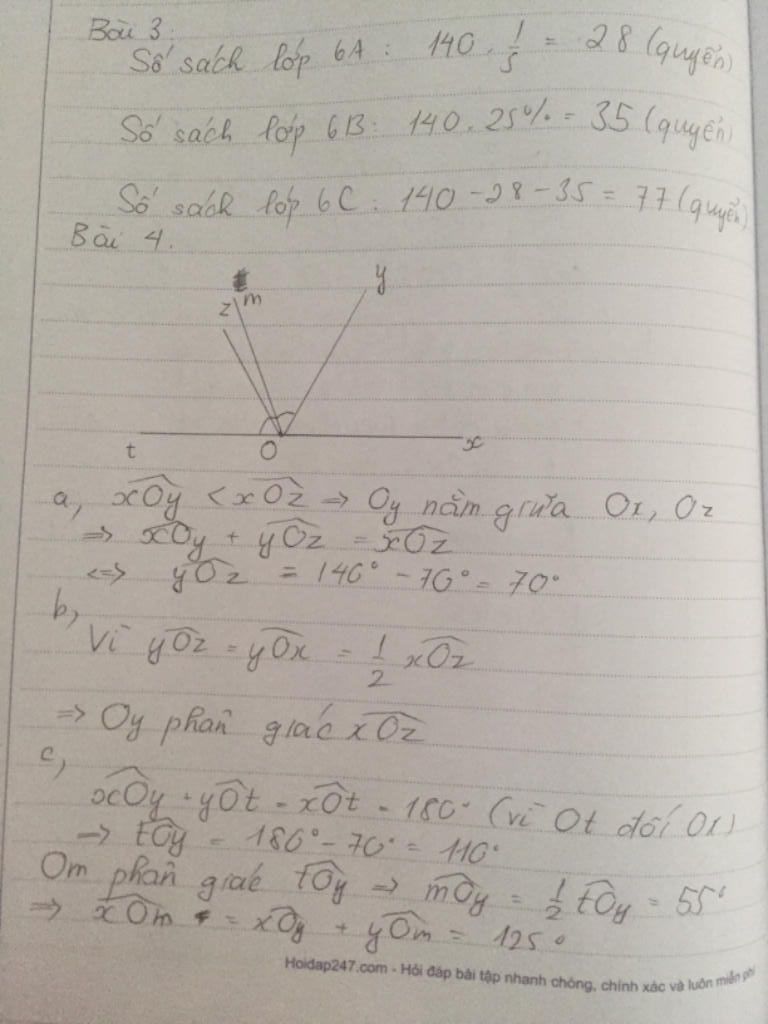 Bài 3:
Số sách lớp 6A : 140 . 1/5 = 28 (quyển)
Số sách lớp 6B : 140 . 25% = 35 (quyển)
Số sách lớp 6C : 140 - 28 - 35 = 77 (quyển)
Bài 4.
y
z m
t O x
a, xOy < xOz => Oy nằm giữa Ox, Oz
=> xOy + yOz = xOz
<=> yOz = 140° - 70° = 70°
b,
Vì yOz = yOx = 1/2 xOz
=> Oy phân giác xOz
c,
xOy + yOt = xOt = 180° (vì Ot đối Ox)
=> tOy = 180° - 70° = 110°
Om phân giác tOy => mOy = 1/2 tOy = 55°
=> xOm = xOy + yOm = 125°
Hoidap247.com - Hỏi đáp bài tập nhanh chóng, chính xác và luôn miễn phí